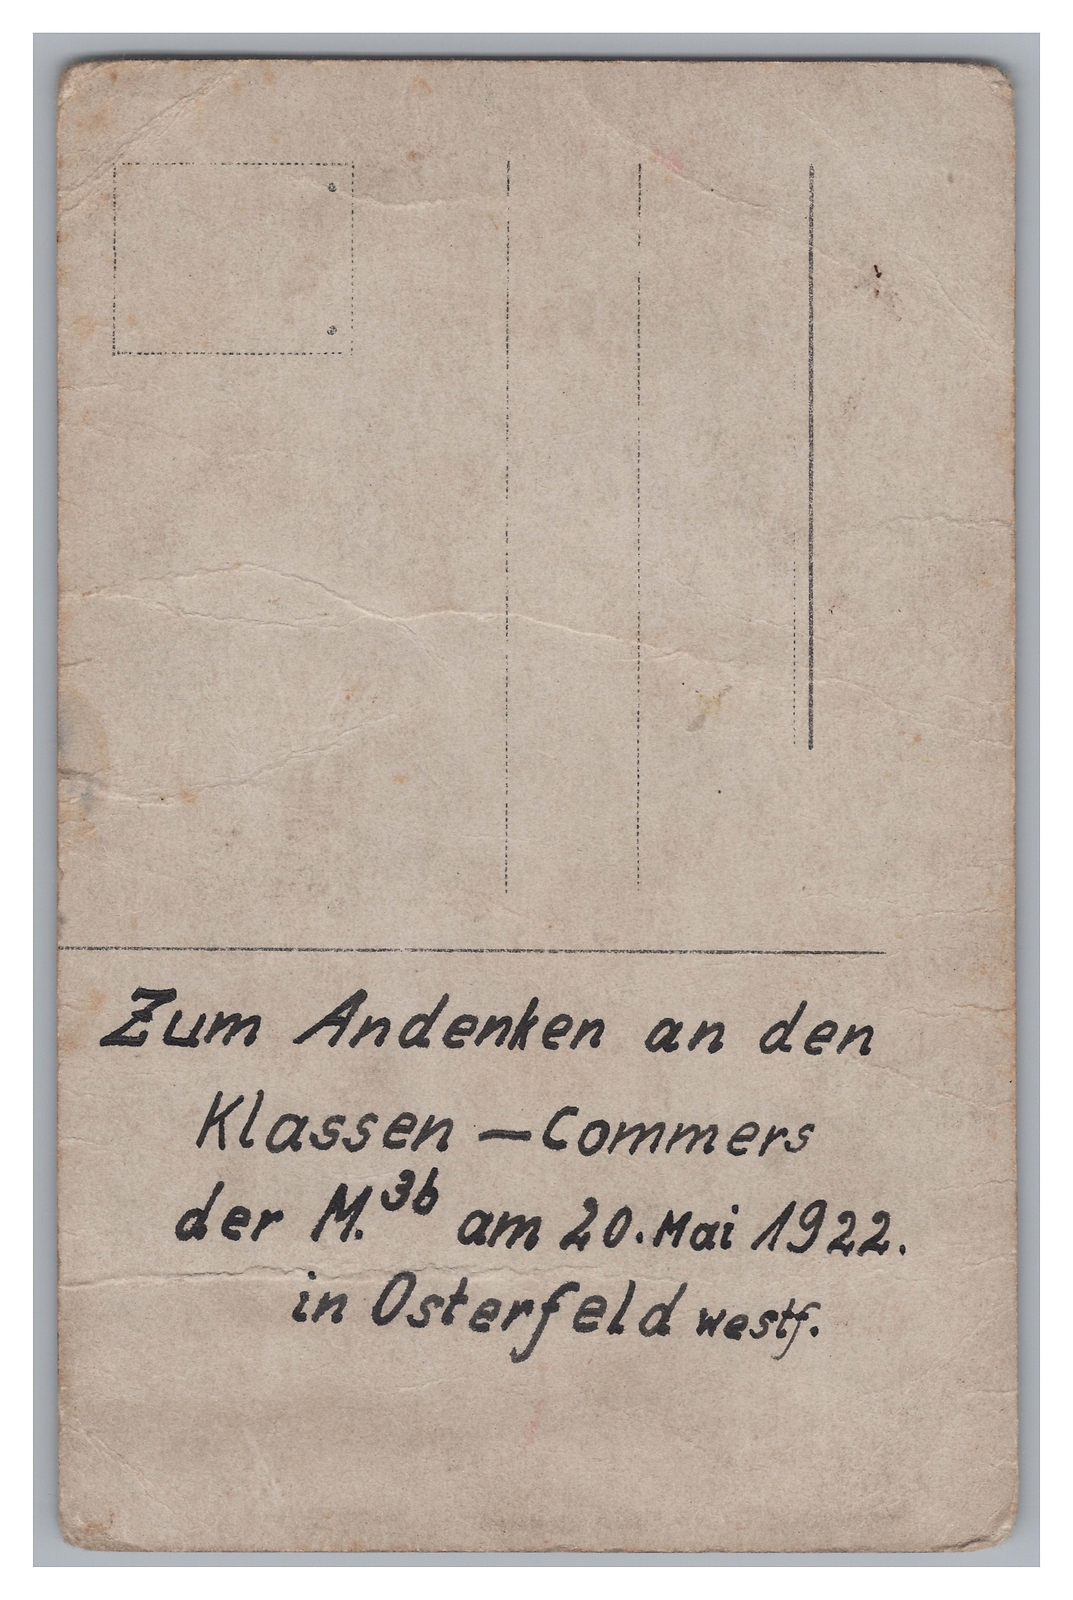 Zum Andenken an den
Klassen - Commers
der M.3b am 20. Mai 1922.
in Osterfeld westf.